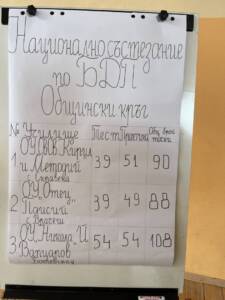 Национално състезание
по БДП
Общински кръг
№ Училище Тест Практика Общ брой точки
1 ОУ„Св.Св. Кирил и Методий 39 51 90
2 ОУ„Отец Паисий" с. Врачеш 39 49 88
3 ОУ„Никола Й. Вапцаров 54 54 108